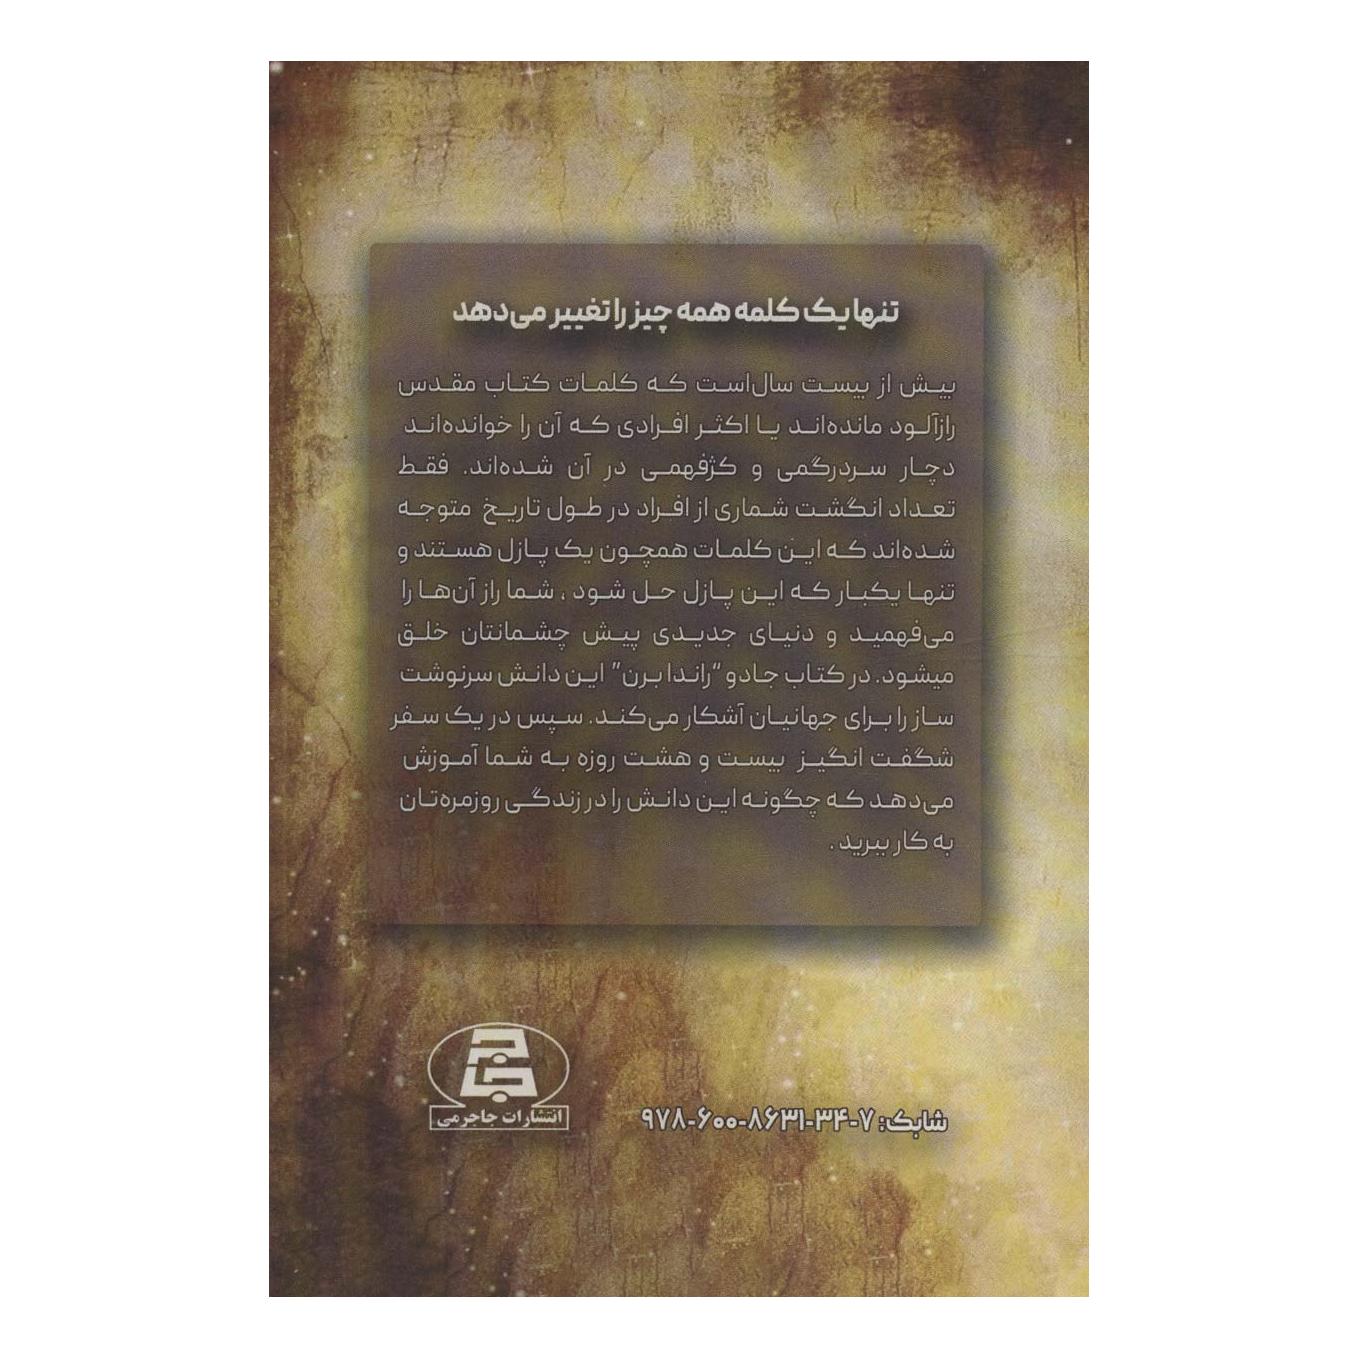 تنها یک کلمه همه چیز را تغییر می‌دهد
بیش از بیست سال است که کلمات کتاب مقدس
رازآلود مانده‌اند یا اکثر افرادی که آن را خوانده‌اند
دچار سردرگمی و کژفهمی در آن شده‌اند. فقط
تعداد انگشت شماری از افراد در طول تاریخ متوجه
شده‌اند که این کلمات همچون یک پازل هستند و
تنها یکبار که این پازل حل شود ، شما راز آن‌ها را
می‌فهمید و دنیای جدیدی پیش چشمانتان خلق
میشود. در کتاب جادو “راندا برن” این دانش سرنوشت
ساز را برای جهانیان آشکار می‌کند. سپس در یک سفر
شگفت انگیز بیست و هشت روزه به شما آموزش
می‌دهد که چگونه این دانش را در زندگی روزمره‌تان
به کار ببرید .
شابک: ۷-۳۴-۸۶۳۱-۶۰۰-۹۷۸
انتشارات جاجرمی